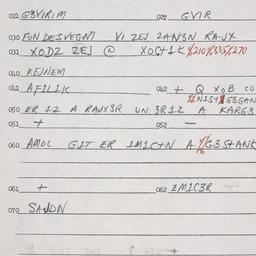 021 G3VIRIM 022 GVIR
030 FUN DESVEGN7 VI ZEJ 2AN3N RAJX
031 XODZ ZEJ @ XOST1K %210%335%270
040 KEJNEM
041 AF1L1K 042 + Q XOB CU
%N1ST G3GAN
050 ER 12 A RAJX3R UN 3R12 A KARG3
051 + 052 –
060 AMOL G1T ER 1M1CTN A %G3STANK
061 + 062 EM1C3R
070 SAJDN